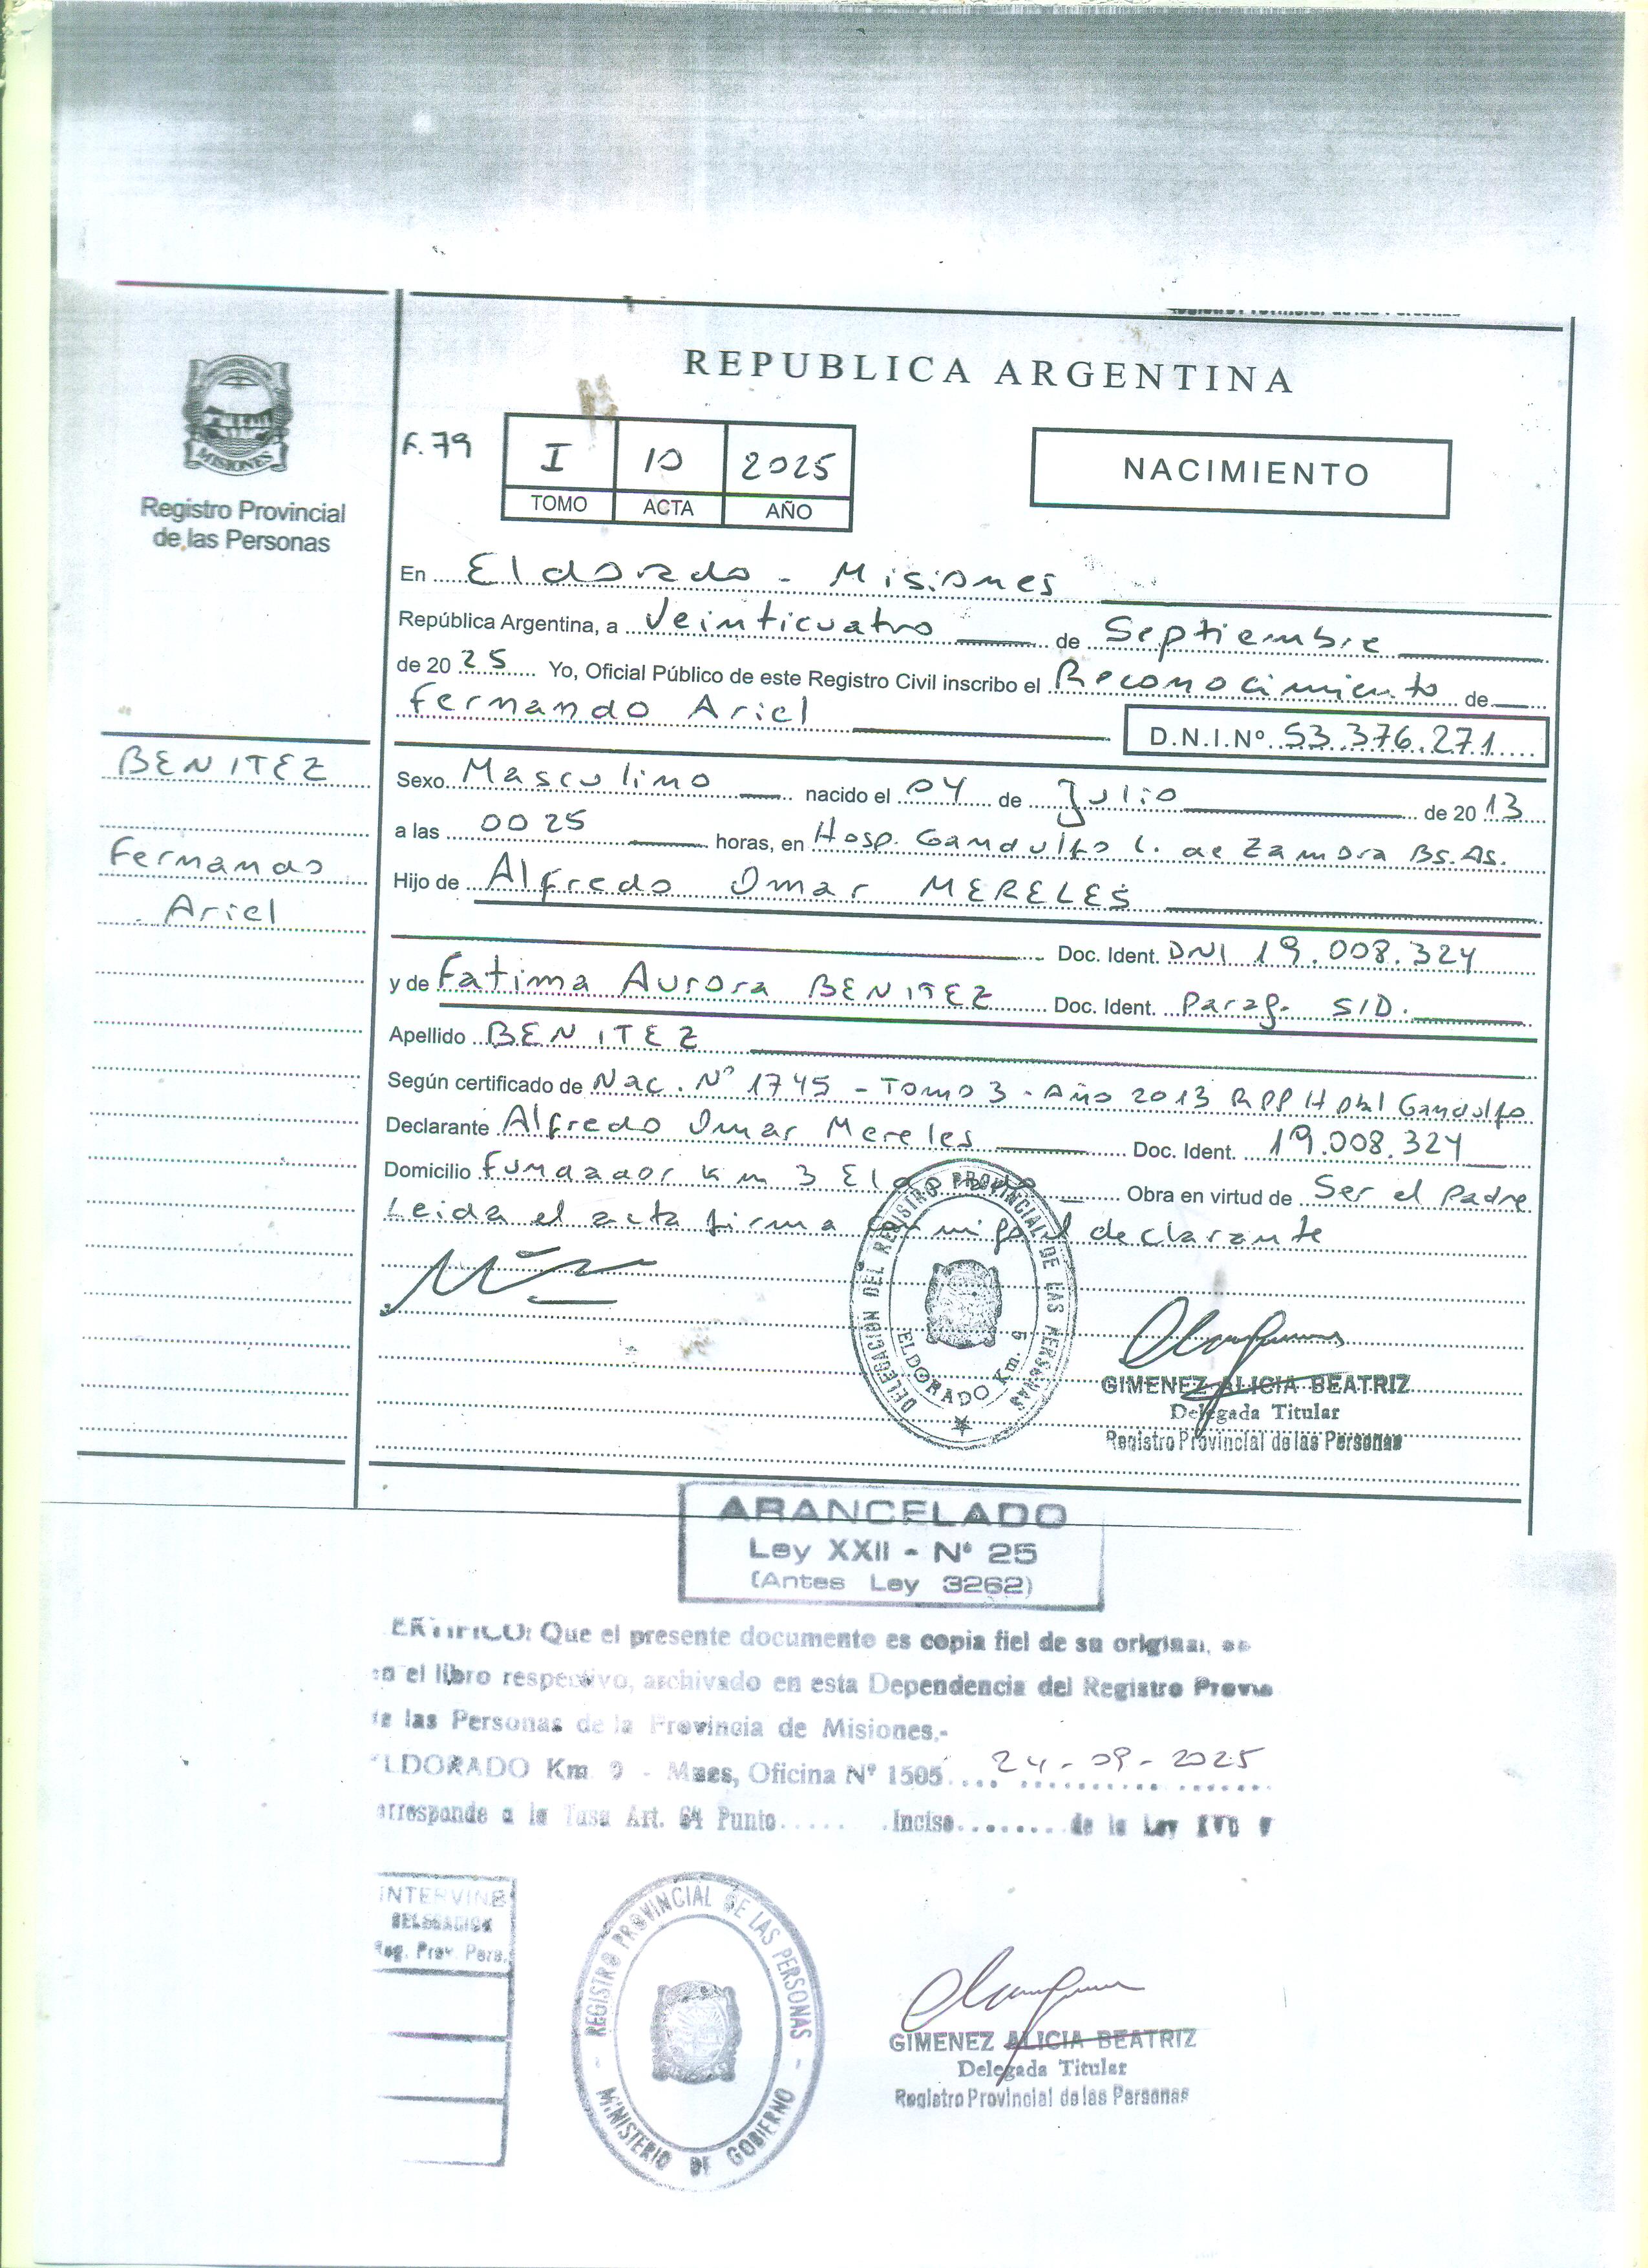 REPUBLICA ARGENTINA
MISIONES
Registro Provincial
de las Personas
F. 79
I 10 2025
TOMO ACTA AÑO
NACIMIENTO
En Eldorado - Misiones
República Argentina, a Veinticuatro de Septiembre
de 20 25 Yo, Oficial Público de este Registro Civil inscribo el Reconocimiento de
Fernando Ariel
D.N.I.Nº 53.376.271
BENITEZ
Fernando
Ariel
Sexo Masculino nacido el 04 de Julio de 20 13
a las 00 25 horas, en Hosp. Gandulfo L. de Zamora Bs. As.
Hijo de Alfredo Omar MERELES
Doc. Ident. DNI 19.008.324
y de Fatima Aurora BENITEZ Doc. Ident. Parag. S/D.
Apellido BENITEZ
Según certificado de Nac. Nº 1745 - Tomo 3 - Año 2013 RPP Gandulfo
Declarante Alfredo Omar Mereles Doc. Ident. 19.008.324
Domicilio Fundador Km 3 Obra en virtud de Ser el Padre
Leida el acta firma declarante
DELEGACION DEL REGISTRO PROVINCIAL DE LAS PERSONAS
ELDORADO Km. 9
GIMENEZ ALICIA BEATRIZ
Delegada Titular
Registro Provincial de las Personas
ARANCELADO
Ley XXII - Nº 25
(Antes Ley 3262)
ERTIFICO: Que el presente documento es copia fiel de su original,
en el libro respectivo, archivado en esta Dependencia del Registro Provin
de las Personas de la Provincia de Misiones.-
ELDORADO Km. 9 - Mnes, Oficina Nº 1505 24-09-2025
arresponde a la Tasa Art. 64 Punto Inciso de la Ley
INTERVINE
DELEGACION
Reg. Prov. Pers.
REGISTRO PROVINCIAL DE LAS PERSONAS
- MINISTERIO DE GOBIERNO -
GIMENEZ ALICIA BEATRIZ
Delegada Titular
Registro Provincial de las Personas